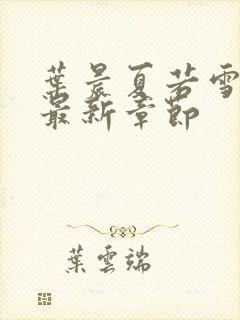 葉晨夏若雪
最新章節
葉雲端